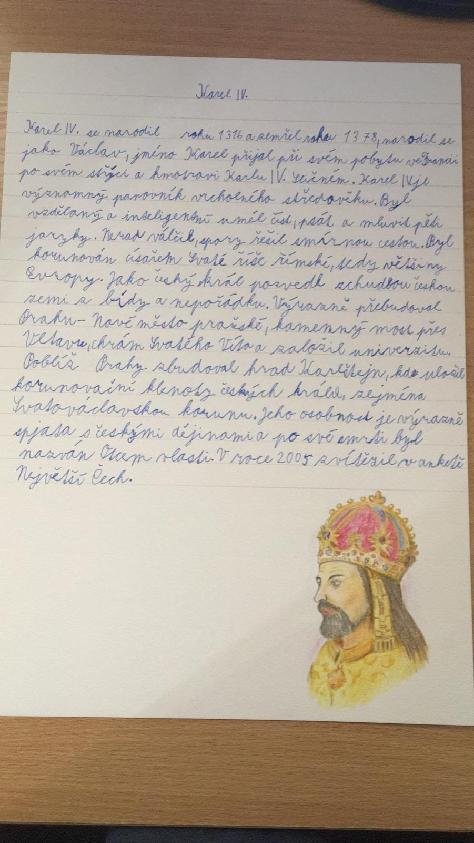 Karel IV.
Karel IV. se narodil roku 1316 a zemřel roku 1378, narodil se
jako Václav, jméno Karel přijal při svém pobytu ve Francii
po svém strýci a kmotrovi Karlu IV. Sličném. Karel IV je
významný panovník vrcholného středověku. Byl
vzdělaný a inteligentní uměl číst, psát a mluvit pěti
jazyky. Nerad válčil, spory řešil smírnou cestou. Byl
korunován císařem Svaté říše římské, tedy většiny
Evropy. Jako český král pozvedl zchudlou českou
zemi z bídy a nepořádku. Výrazně přebudoval
Prahu - Nové město pražské, kamenný most přes
Vltavu, chrám Svatého Víta a založil univerzitu.
Poblíž Prahy zbudoval hrad Karlštejn, kde uložil
korunovační klenoty českých králů, zejména
Svatováclavskou korunu. Jeho osobnost je výrazně
spjata s českými dějinami a po své smrti byl
nazván Otcem vlasti. V roce 2005 zvítězil v anketě
Největší Čech.